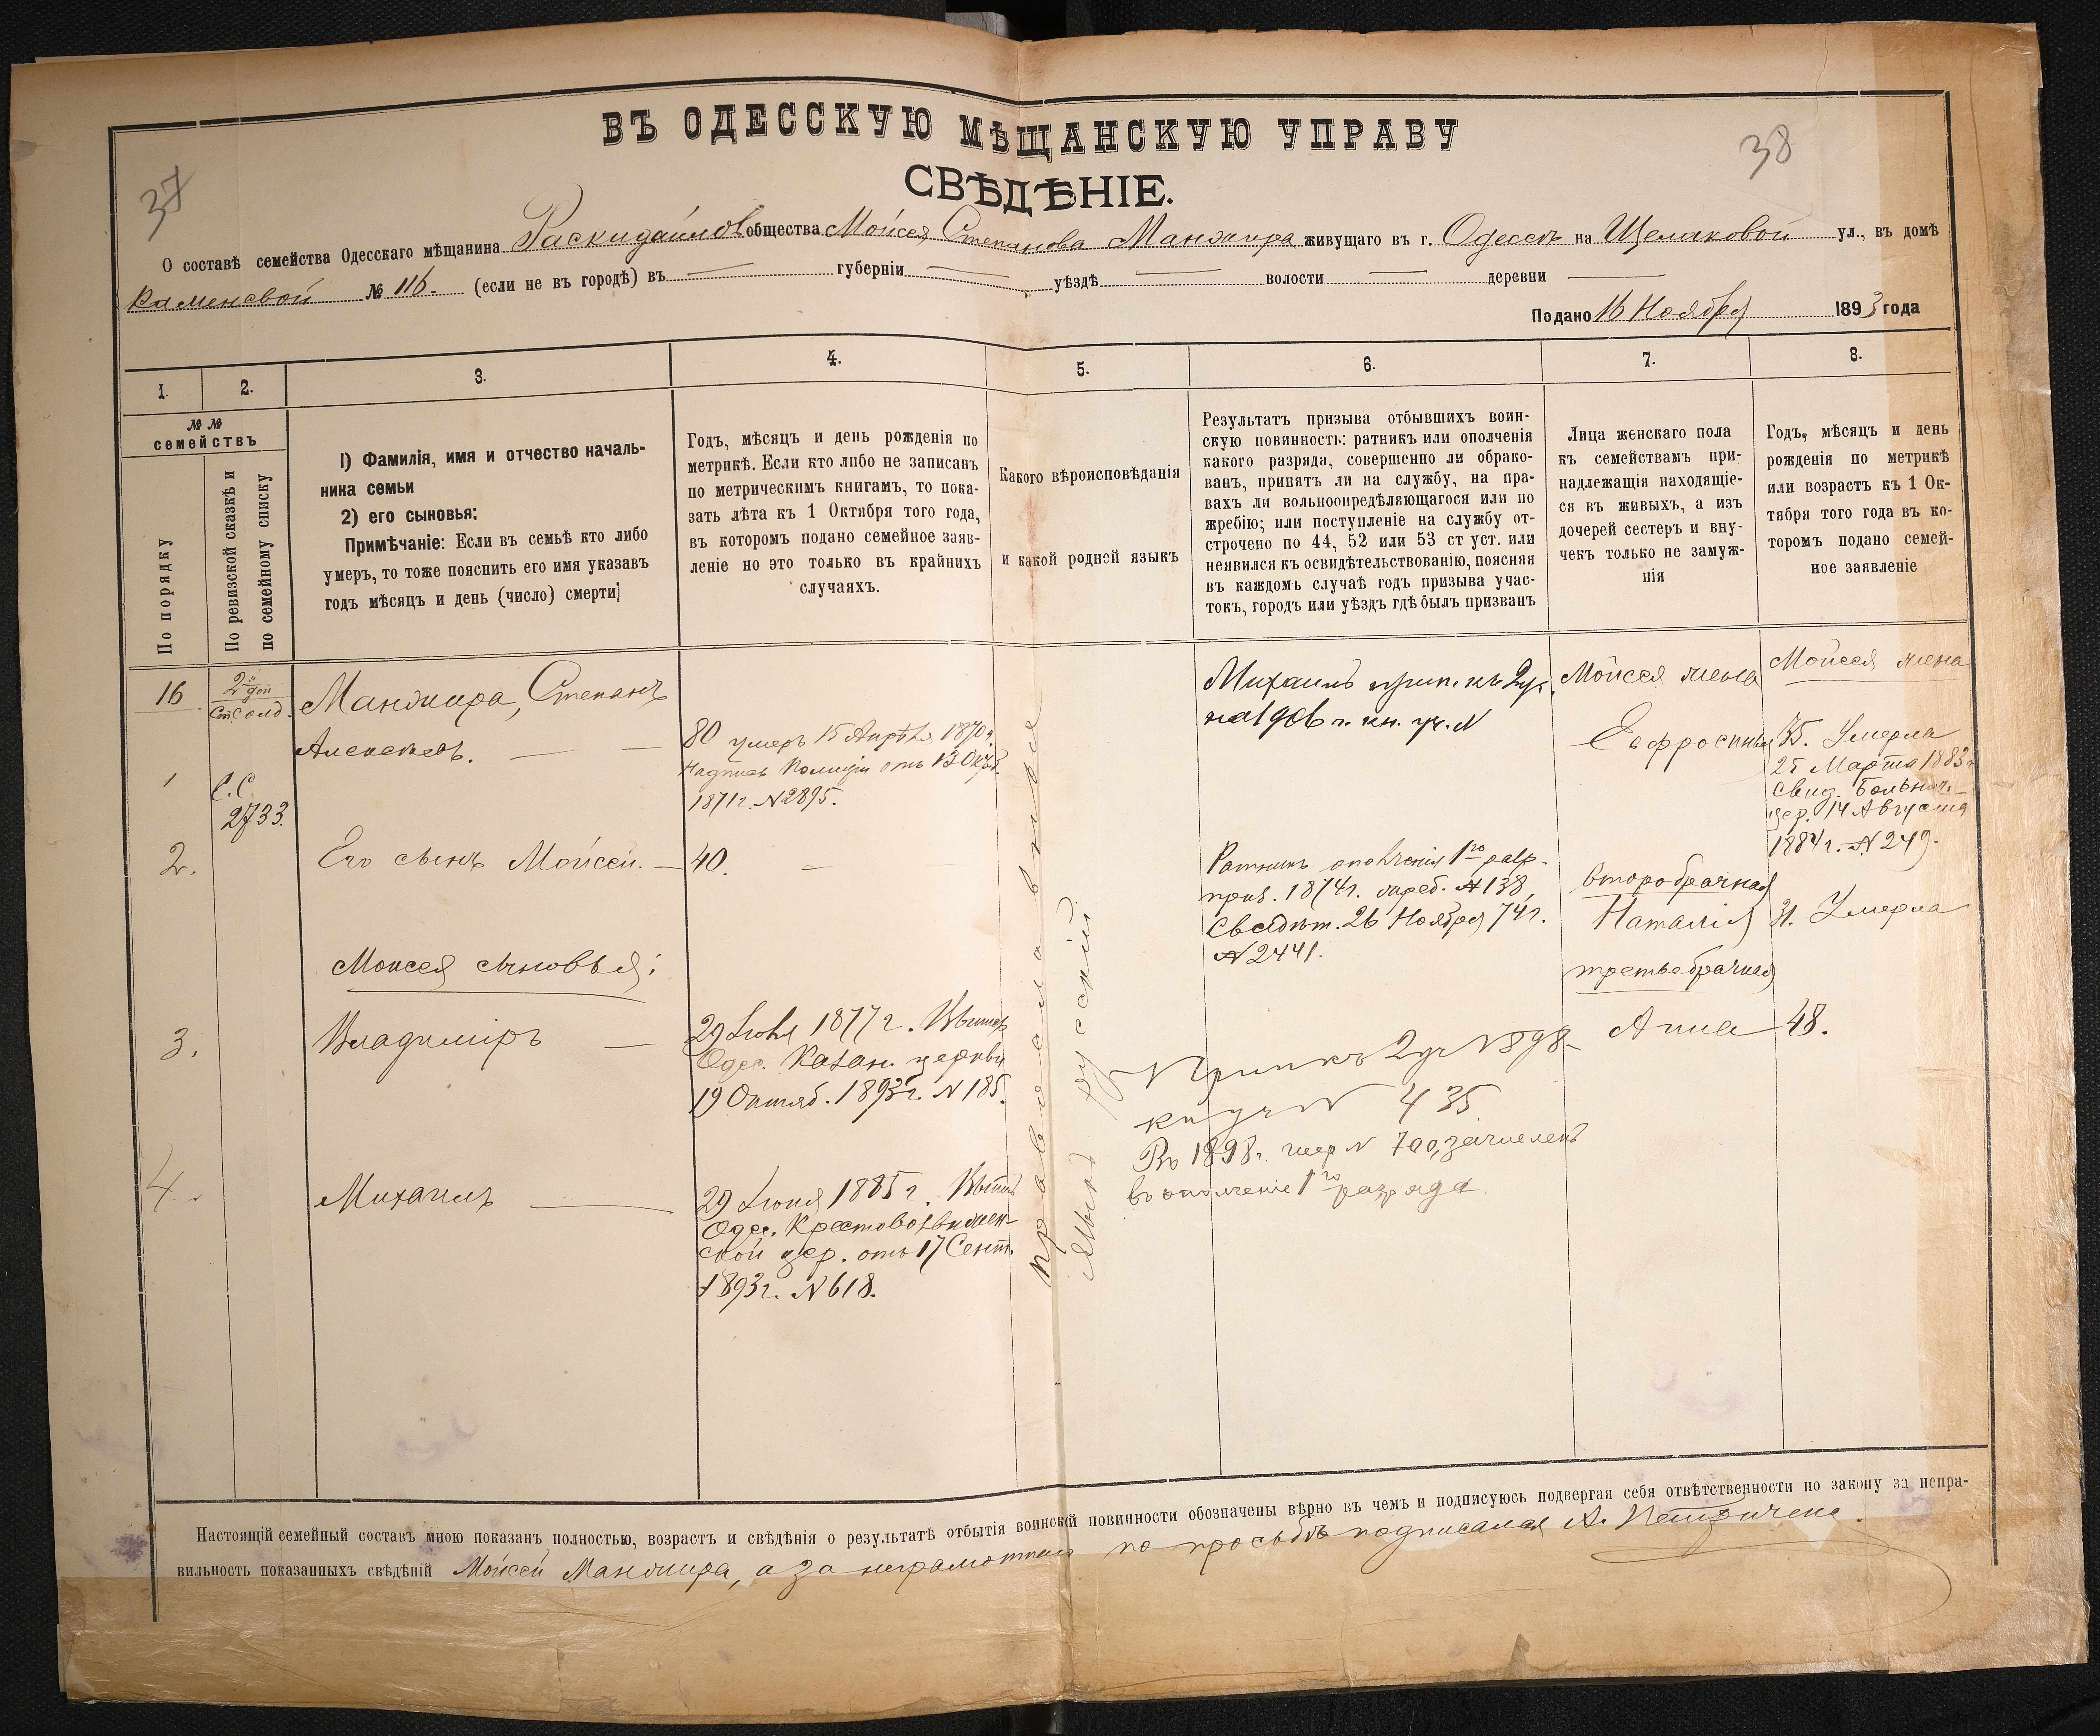 ВЪ ОДЕССКУЮ МѢЩАНСКУЮ УПРАВУ
СВѢДѢНІЕ.
37
38
О составѣ семейства Одесскаго мѣщанина Раскидайлов общества Мойсея Степанова Манжира живущаго въ г. Одессѣ на ул., въ домѣ
Каменевой № 116. (если не въ городѣ) въ губерніи уѣздѣ волости деревни
Подано 16 Ноября 1893 года
1. 2. 3. 4. 5. 6. 7. 8.
№№
семействъ
По порядку
По ревизской сказкѣ и
по семейному списку
1) Фамилія, имя и отчество началь-
ника семьи
2) его сыновья:
Примѣчаніе: Если въ семьѣ кто либо
умеръ, то тоже пояснить его имя указавъ
годъ мѣсяцъ и день (число) смерти
Годъ, мѣсяцъ и день рожденія по
метрикѣ. Если кто либо не записанъ
по метрическимъ книгамъ, то пока-
зать лѣта къ 1 Октября того года,
въ которомъ подано семейное заяв-
леніе но это только въ крайнихъ
случаяхъ.
Какого вѣроисповѣданія
и какой родной языкъ
Результатъ призыва отбывшихъ воин-
скую повинность: ратникъ или ополченія
какого разряда, совершенно ли обрако-
ванъ, принятъ ли на службу, на пра-
вахъ ли вольноопредѣляющагося или по
жребію; или поступленіе на службу от-
строчено по 44, 52 или 53 ст уст. или
неявился къ освидѣтельствованію, поясняя
въ каждомъ случаѣ годъ призыва учас-
токъ, городъ или уѣздъ гдѣ былъ призванъ
Лица женскаго пола
къ семействамъ при-
надлежащія находящіе-
ся въ живыхъ, а изъ
дочерей сестеръ и вну-
чекъ только не замуж-
нія
Годъ, мѣсяцъ и день
рожденія по метрикѣ
или возрастъ къ 1 Ок-
тября того года въ ко-
торомъ подано семей-
ное заявленіе
16
Манжира, Степанъ
Алексѣев.
80 умеръ 15 Апрѣля 1870 г.
Надпись Полиціи отъ 13
1871 г. N 2895.
Михаилъ прип. къ 2 уч.
на 1906 г. кн. уч. N
Мойсея жена
Евфросинія
Мойсея жена
35. Умерла
25 Марта 1883 г.
свид. Больнич.
цер. 14 Августа
1884 г. N 249.
1
С.С.
2733.
2. Его сынъ Мойсей. 40.
Ратникъ ополченія 1го разр.
приз. 1874 г. жреб. N 138,
Свидѣт. 26 Ноября 74 г.
N 2441.
второбрачная
Наталія 31. Умерла
третьебрачная
Анна 48.
Моисея сыновья:
3. Владиміръ
29 1877 г.
Одес. Казан. церкви
19 Октяб. 1893 г. N 185.
православное
языкъ русскій
Прип къ 2 уч 1898
кн уч N 435
Въ 1898 г. жер N 700, зачисленъ
въ ополченіе 1го разряда.
4. Михаилъ
29 Іюня 1885 г.
Одес. Крестовоздвижен-
ской цер. отъ 17 Сент.
1893 г. N 618.
Настоящій семейный составъ мною показанъ полностью, возрастъ и свѣдѣнія о результатѣ отбытія воинской повинности обозначены вѣрно въ чемъ и подписуюсь подвергая себя отвѣтственности по закону за непра-
вильность показанныхъ свѣдѣній Мойсей Манжира, а за неграмотнаго по просьбѣ подписался А.